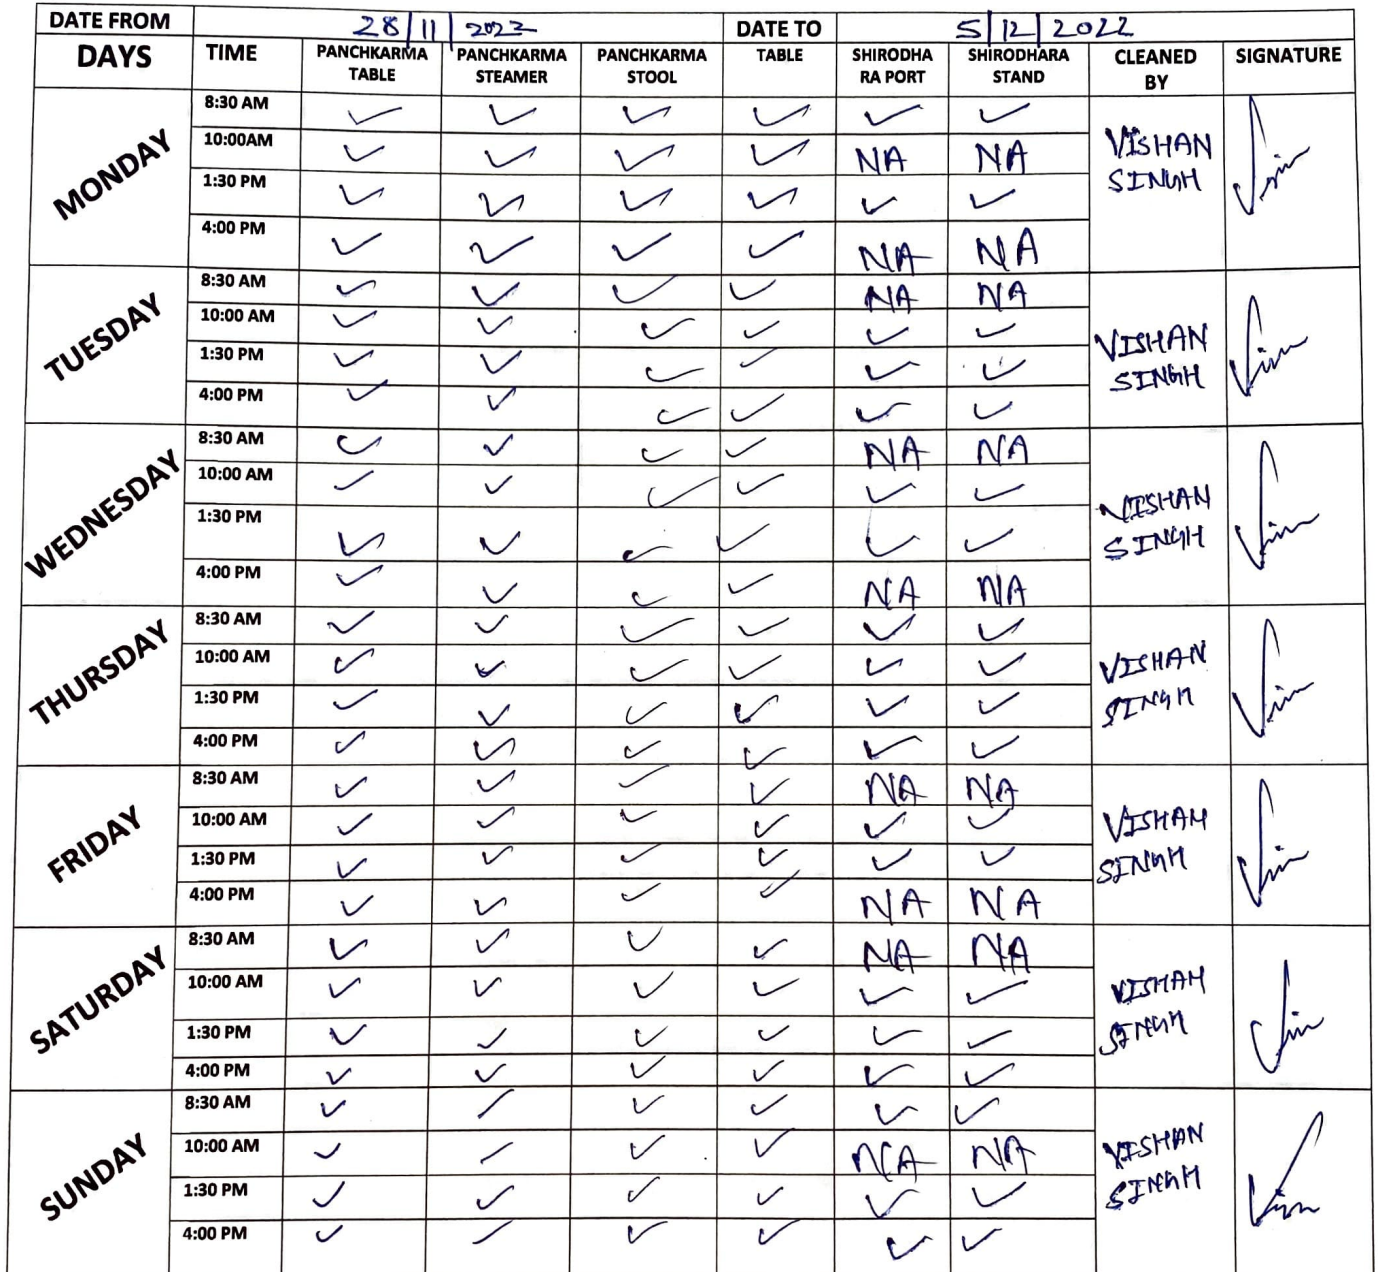 DATE FROM 28/11/2022 DATE TO 5/12/2022
DAYS TIME PANCHKARMA TABLE PANCHKARMA STEAMER PANCHKARMA STOOL TABLE SHIRODHA RA PORT SHIRODHARA STAND CLEANED BY SIGNATURE
MONDAY
8:30 AM ✓ ✓ ✓ ✓ ✓ ✓ VISHAN SINGH
10:00AM ✓ ✓ ✓ ✓ NA NA
1:30 PM ✓ ✓ ✓ ✓ ✓ ✓
4:00 PM ✓ ✓ ✓ ✓ NA NA
TUESDAY
8:30 AM ✓ ✓ ✓ ✓ NA NA VISHAN SINGH
10:00 AM ✓ ✓ ✓ ✓ ✓ ✓
1:30 PM ✓ ✓ ✓ ✓ ✓ ✓
4:00 PM ✓ ✓ ✓ ✓ ✓ ✓
WEDNESDAY
8:30 AM ✓ ✓ ✓ ✓ NA NA VISHAN SINGH
10:00 AM ✓ ✓ ✓ ✓ ✓ ✓
1:30 PM ✓ ✓ ✓ ✓ ✓ ✓
4:00 PM ✓ ✓ ✓ ✓ NA NA
THURSDAY
8:30 AM ✓ ✓ ✓ ✓ ✓ ✓ VISHAN SINGH
10:00 AM ✓ ✓ ✓ ✓ ✓ ✓
1:30 PM ✓ ✓ ✓ ✓ ✓ ✓
4:00 PM ✓ ✓ ✓ ✓ ✓ ✓
FRIDAY
8:30 AM ✓ ✓ ✓ ✓ NA NA VISHAN SINGH
10:00 AM ✓ ✓ ✓ ✓ ✓ ✓
1:30 PM ✓ ✓ ✓ ✓ ✓ ✓
4:00 PM ✓ ✓ ✓ ✓ NA NA
SATURDAY
8:30 AM ✓ ✓ ✓ ✓ NA NA VISHAN SINGH
10:00 AM ✓ ✓ ✓ ✓ ✓ ✓
1:30 PM ✓ ✓ ✓ ✓ ✓ ✓
4:00 PM ✓ ✓ ✓ ✓ ✓ ✓
SUNDAY
8:30 AM ✓ / ✓ ✓ ✓ ✓ VISHAN SINGH
10:00 AM ✓ / ✓ ✓ NA NA
1:30 PM ✓ ✓ ✓ ✓ ✓ ✓
4:00 PM ✓ / ✓ ✓ ✓ ✓